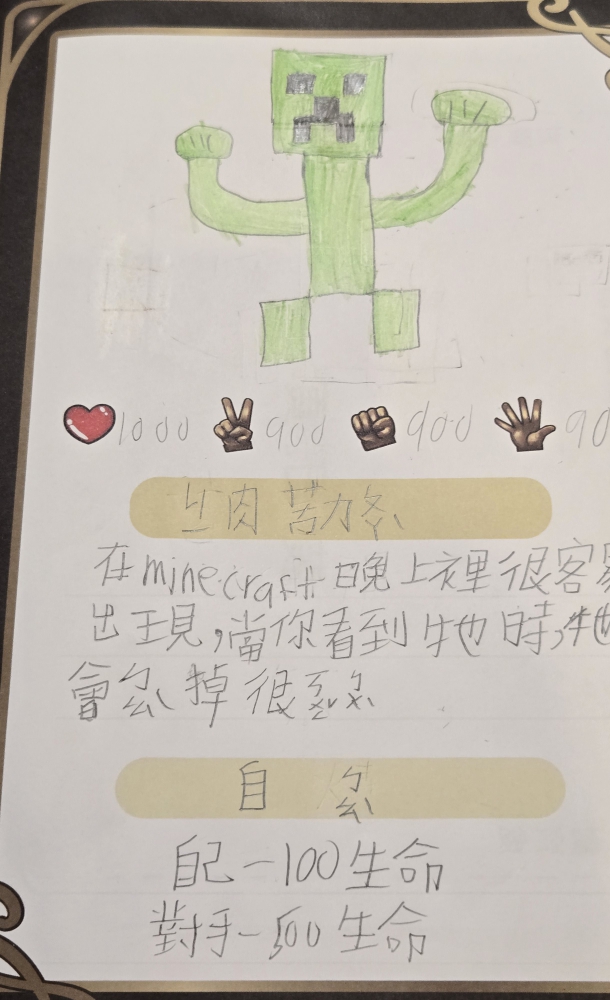 1000 900 900 90
肉 苦力
在minecraft晚上裡很客
出現,當你看到牠時,牠
會 掉很
自
自己-100生命
對手-500生命